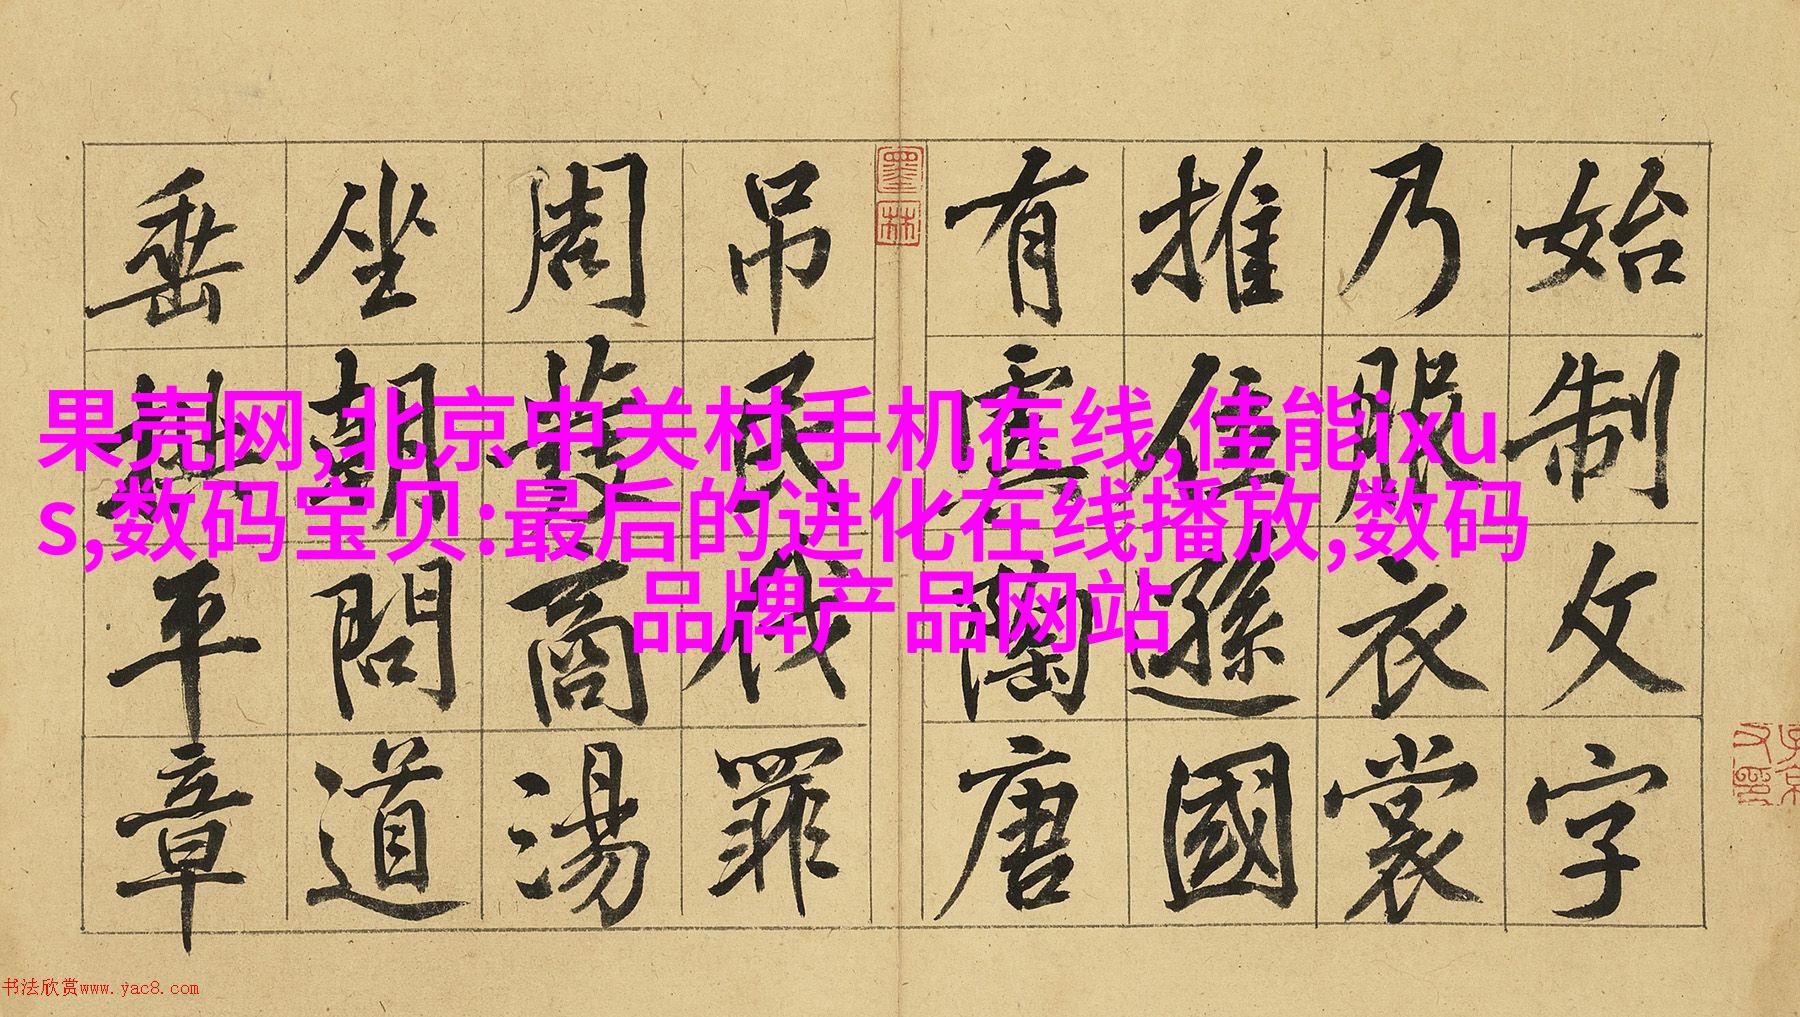 始制文字
乃服衣裳
推位遜國
有虞陶唐
墨林
吊民伐罪
周發商湯
坐朝問道
垂拱平章
果壳网,北京中关村手机在线,佳能ixu
s,数码宝贝:最后的进化在线播放,数码
品牌产品网站
书法欣赏www.yac8.com